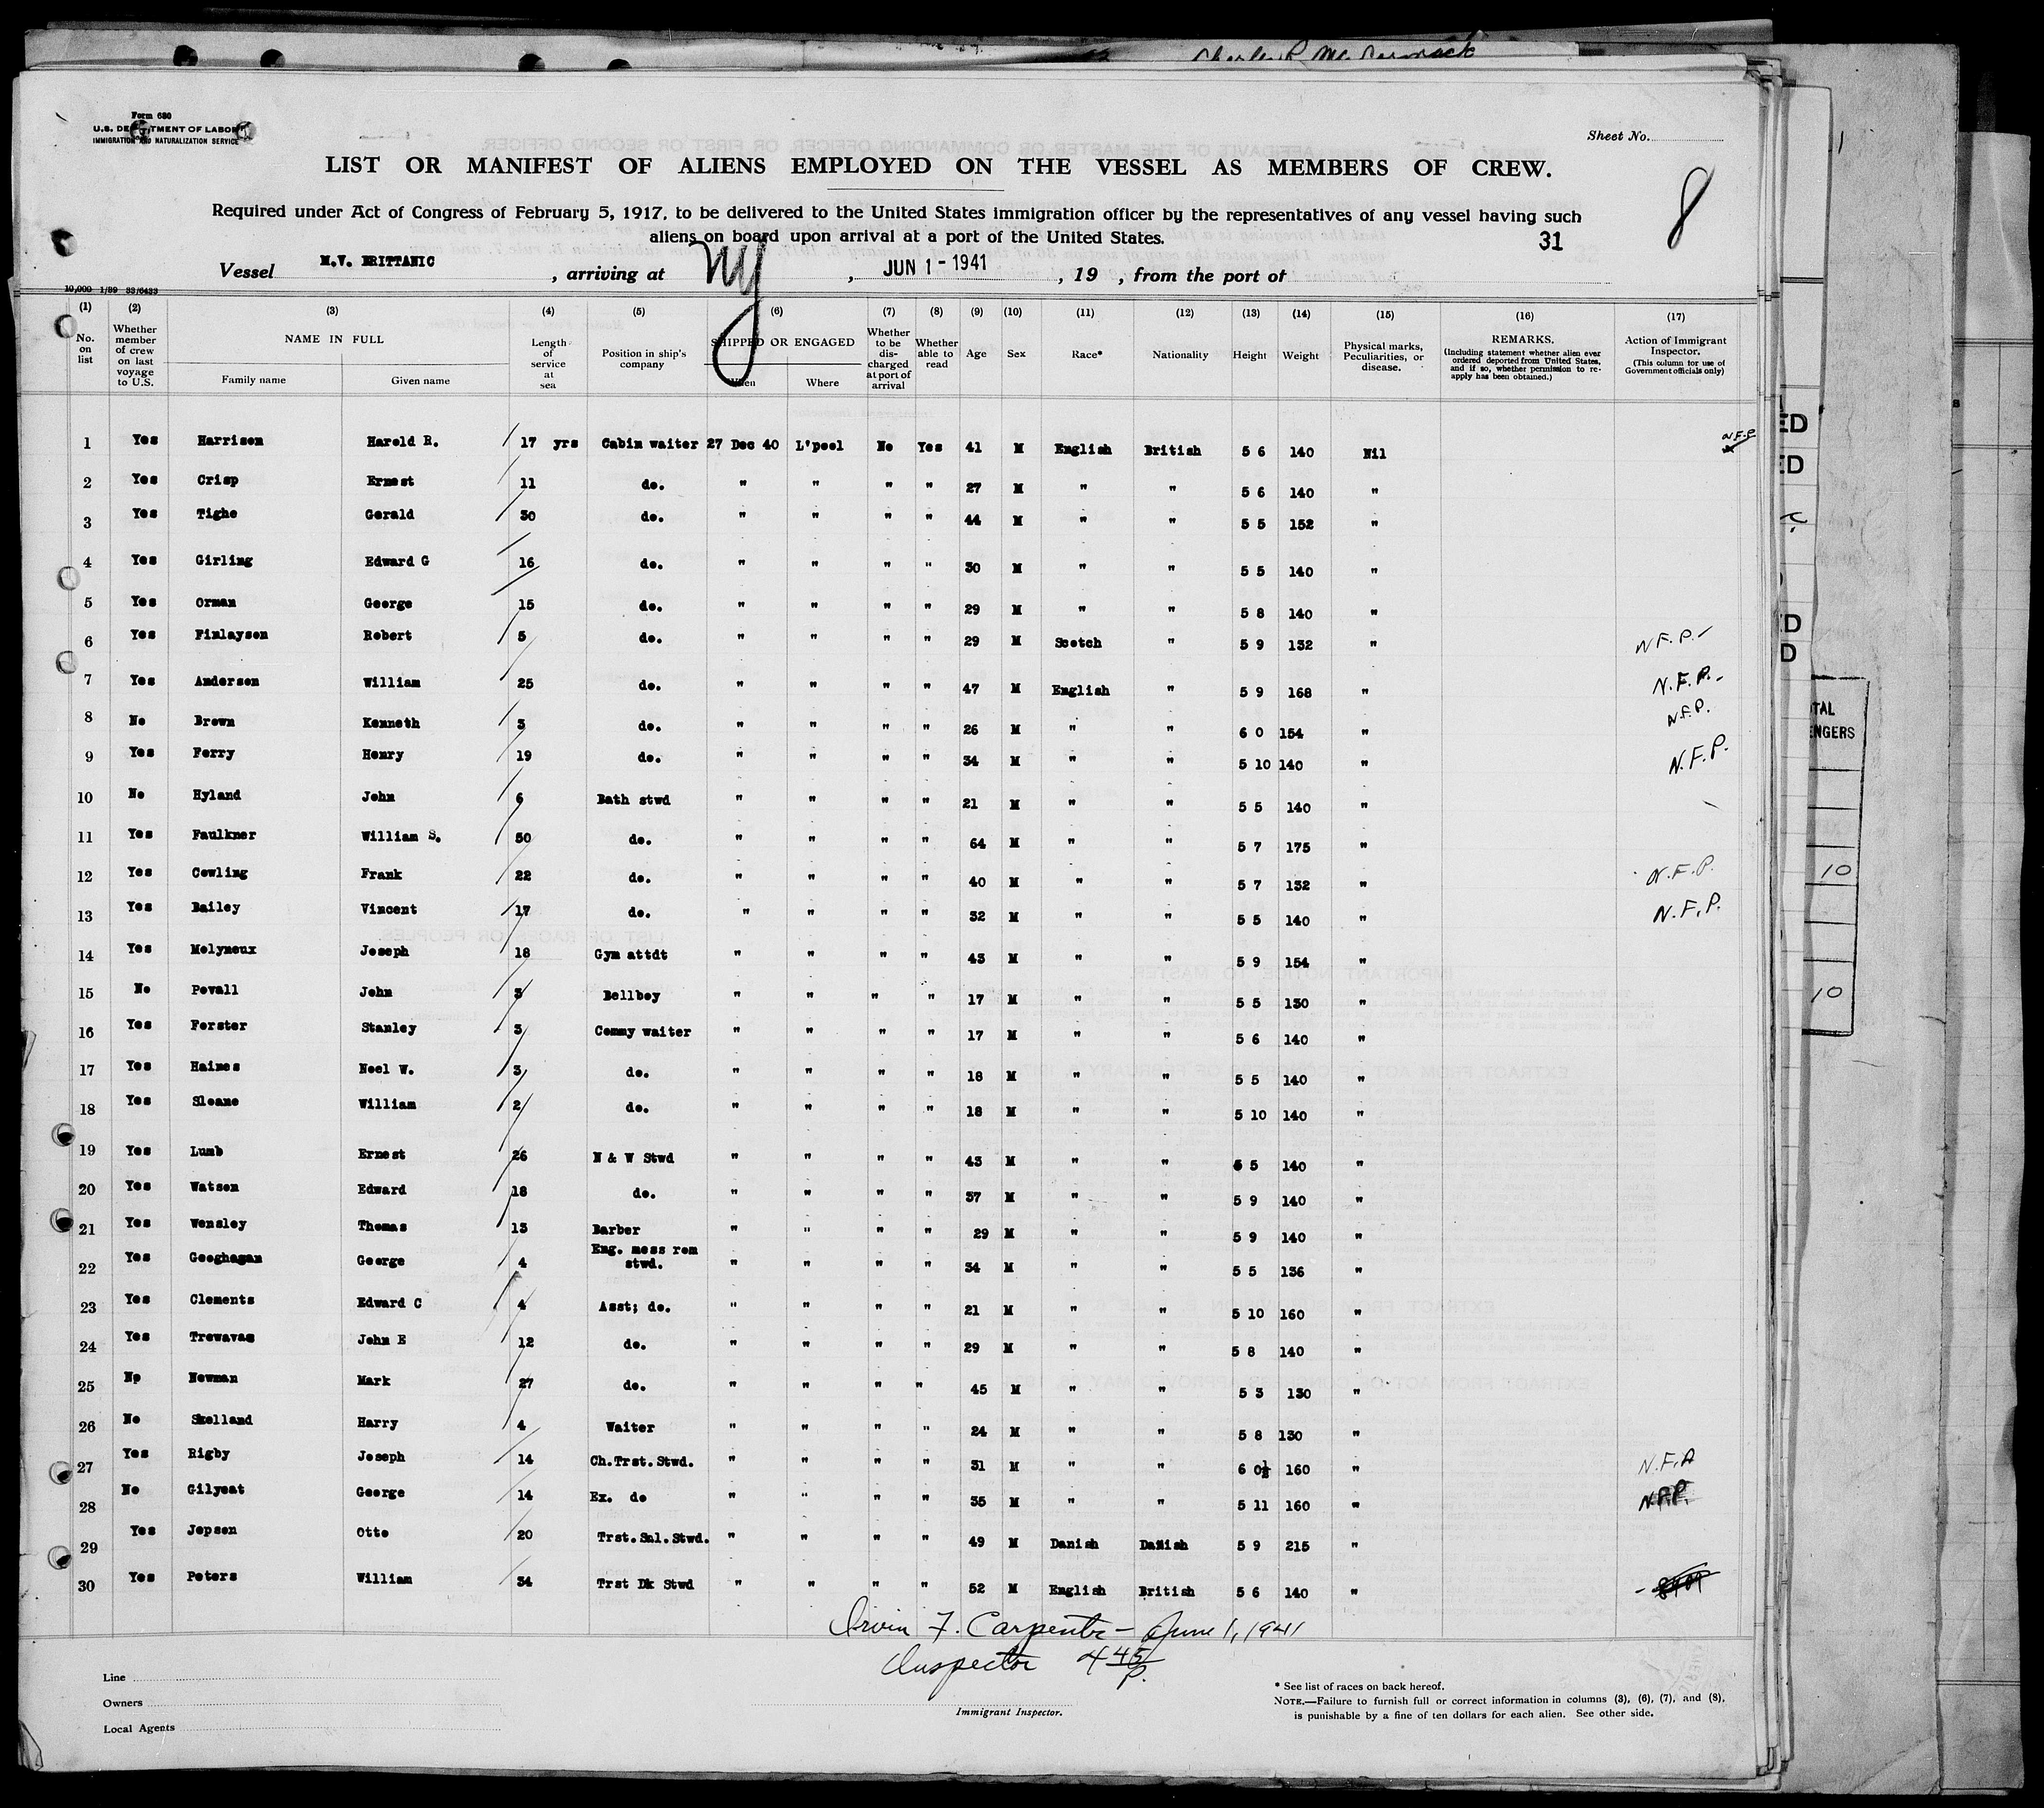 Charles R McCormack
Form 680
U.S. DEPARTMENT OF LABOR
IMMIGRATION AND NATURALIZATION SERVICE
Sheet No.
LIST OR MANIFEST OF ALIENS EMPLOYED ON THE VESSEL AS MEMBERS OF CREW.
8
Required under Act of Congress of February 5, 1917, to be delivered to the United States immigration officer by the representatives of any vessel having such
aliens on board upon arrival at a port of the United States.
31
Vessel M.V. BRITTANIC , arriving at NY , JUN 1 - 1941 , 19 , from the port of
10,000 1/39 33/6433
(1) (2) (3) (4) (5) (6) (7) (8) (9) (10) (11) (12) (13) (14) (15) (16) (17)
No. on list Whether member of crew on last voyage to U.S. NAME IN FULL Family name Given name Length of service at sea Position in ship's company SHIPPED OR ENGAGED When Where Whether to be discharged at port of arrival Whether able to read Age Sex Race* Nationality Height Weight Physical marks, Peculiarities, or disease. REMARKS. (Including statement whether alien ever ordered deported from United States, and if so, whether permission to reapply has been obtained.) Action of Immigrant Inspector. (This column for use of Government officials only)
1 Yes Harrison Harold R. 17 yrs Cabin waiter 27 Dec 40 L'pool No Yes 41 M English British 5 6 140 Nil N.F.P.
2 Yes Crisp Ernest 11 do. " " " " 27 M " " 5 6 140 "
3 Yes Tighe Gerald 30 do. " " " " 44 M " " 5 5 152 "
4 Yes Girling Edward G 16 do. " " " " 30 M " " 5 5 140 "
5 Yes Orman George 15 do. " " " " 29 M " " 5 8 140 "
6 Yes Finlayson Robert 5 do. " " " " 29 M Scotch " 5 9 132 " N.F.P.-
7 Yes Anderson William 25 do. " " " " 47 M English " 5 9 168 " N.F.P.-
8 No Brown Kenneth 3 do. " " " " 26 M " " 6 0 154 " N.F.P.
9 Yes Ferry Henry 19 do. " " " " 34 M " " 5 10 140 " N.F.P.
10 No Hyland John 6 Bath stwd " " " " 21 M " " 5 5 140 "
11 Yes Faulkner William S. 50 do. " " " " 64 M " " 5 7 175 "
12 Yes Cowling Frank 22 do. " " " " 40 M " " 5 7 132 " N.F.P.
13 Yes Bailey Vincent 17 do. " " " " 32 M " " 5 5 140 " N.F.P.
14 Yes Molyneux Joseph 18 Gym attdt " " " " 43 M " " 5 9 154 "
15 No Povall John 3 Bellboy " " " " 17 M " " 5 5 130 "
16 Yes Forster Stanley 3 Commy waiter " " " " 17 M " " 5 6 140 "
17 Yes Haines Noel W. 3 do. " " " " 18 M " " 5 5 140 "
18 Yes Sloane William 2 do. " " " " 18 M " " 5 10 140 "
19 Yes Lumb Ernest 26 N & W Stwd " " " " 43 M " " 5 5 140 "
20 Yes Watson Edward 18 do. " " " " 37 M " " 5 9 140 "
21 Yes Wensley Thomas 13 Barber " " " " 29 M " " 5 9 140 "
22 Yes Geoghagan George 4 Eng. mess rom stwd. " " " " 34 M " " 5 5 136 "
23 Yes Clements Edward C 4 Asst; do. " " " " 21 M " " 5 10 160 "
24 Yes Trewavas John E 12 do. " " " " 29 M " " 5 8 140 "
25 No Newman Mark 27 do. " " " " 45 M " " 5 3 130 "
26 No Skelland Harry 4 Waiter " " " " 24 M " " 5 8 130 "
27 Yes Rigby Joseph 14 Ch.Trst.Stwd. " " " " 31 M " " 6 0½ 160 " N.F.A
28 No Gilyeat George 14 Ex. do " " " " 35 M " " 5 11 160 " N.F.P.
29 Yes Jepsen Otto 20 Trst.Snl.Stwd. " " " " 49 M Danish Danish 5 9 215 "
30 Yes Peters William 34 Trst Dk Stwd " " " " 52 M English British 5 6 140 "
Irvin F. Carpenter - June 1, 1941
Inspector 4 45/P.
Line
Owners
Local Agents
Immigrant Inspector.
* See list of races on back hereof.
NOTE.—Failure to furnish full or correct information in columns (3), (6), (7), and (8),
is punishable by a fine of ten dollars for each alien. See other side.
ED
ED
ED
D
TAL
ENGERS
10
10